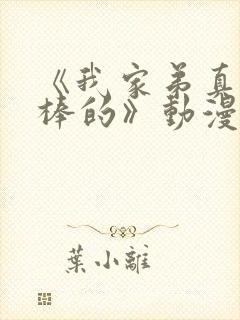 《我家弟真
棒的》動漫
葉小離